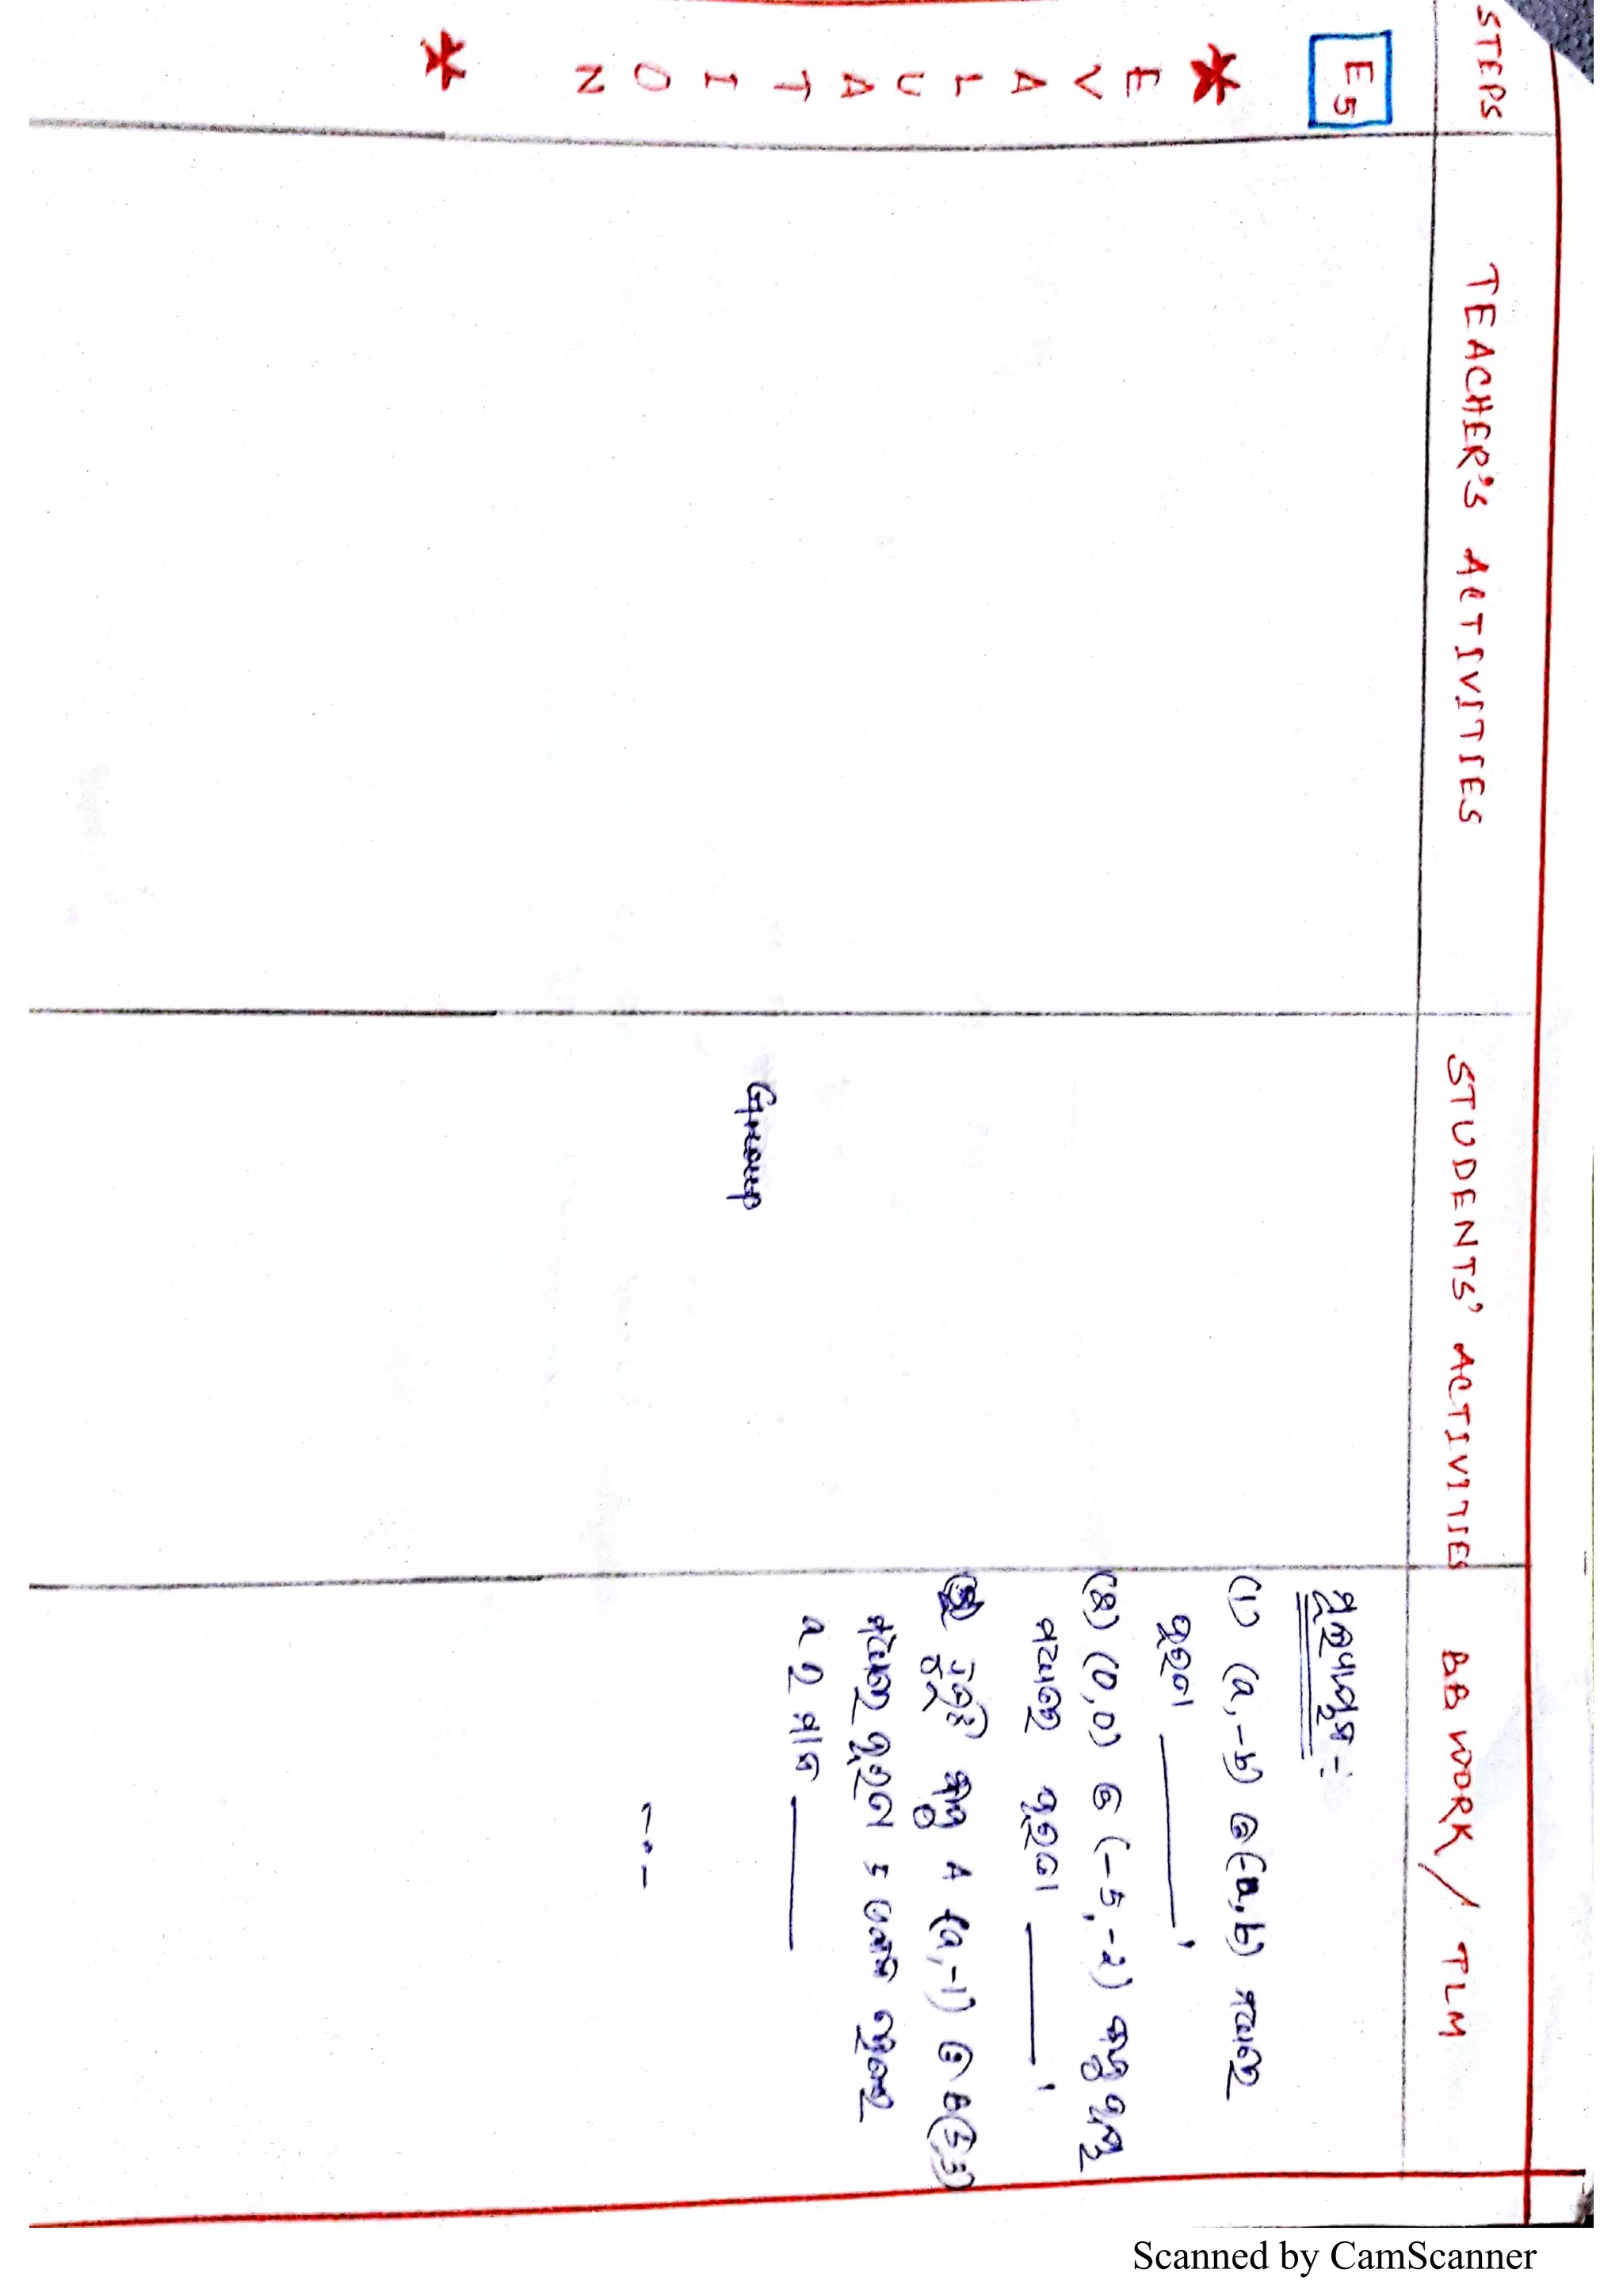 STEPS
TEACHER'S ACTIVITIES
STUDENTS' ACTIVITIES
BB WORK / TLM
E5
* EVALUATION *
Group
(1) (a,-b) ଓ (-a,b) ମଧ୍ୟରେ
ଦୂରତା ______,
(2) (0,0) ଓ (-5,-2)
ମଧ୍ୟରେ ଦୂରତା ______,
A (a,-1) ଓ B(5,3)
ମଧ୍ୟରେ ଦୂରତା 5 ଏକକ
a ର ମାନ ______
Scanned by CamScanner